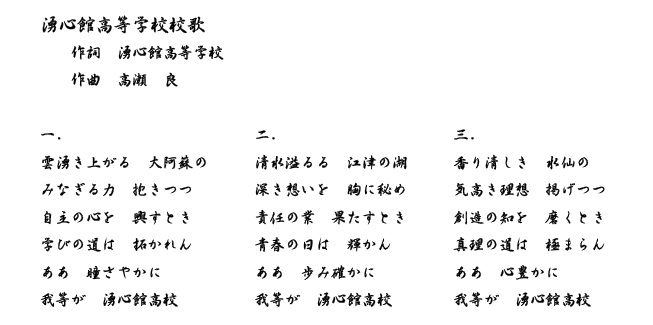 湧心館高等学校校歌
作詞　湧心館高等学校
作曲　高瀬　良
一．
雲湧き上がる　大阿蘇の
みなぎる力　抱きつつ
自主の心を　興すとき
学びの道は　拓かれん
ああ　瞳さやかに
我等が　湧心館高校
二．
清水溢るる　江津の湖
深き想いを　胸に秘め
責任の業　果たすとき
青春の日は　輝かん
ああ　歩み確かに
我等が　湧心館高校
三．
香り清しき　水仙の
気高き理想　掲げつつ
創造の知を　磨くとき
真理の道は　極まらん
ああ　心豊かに
我等が　湧心館高校